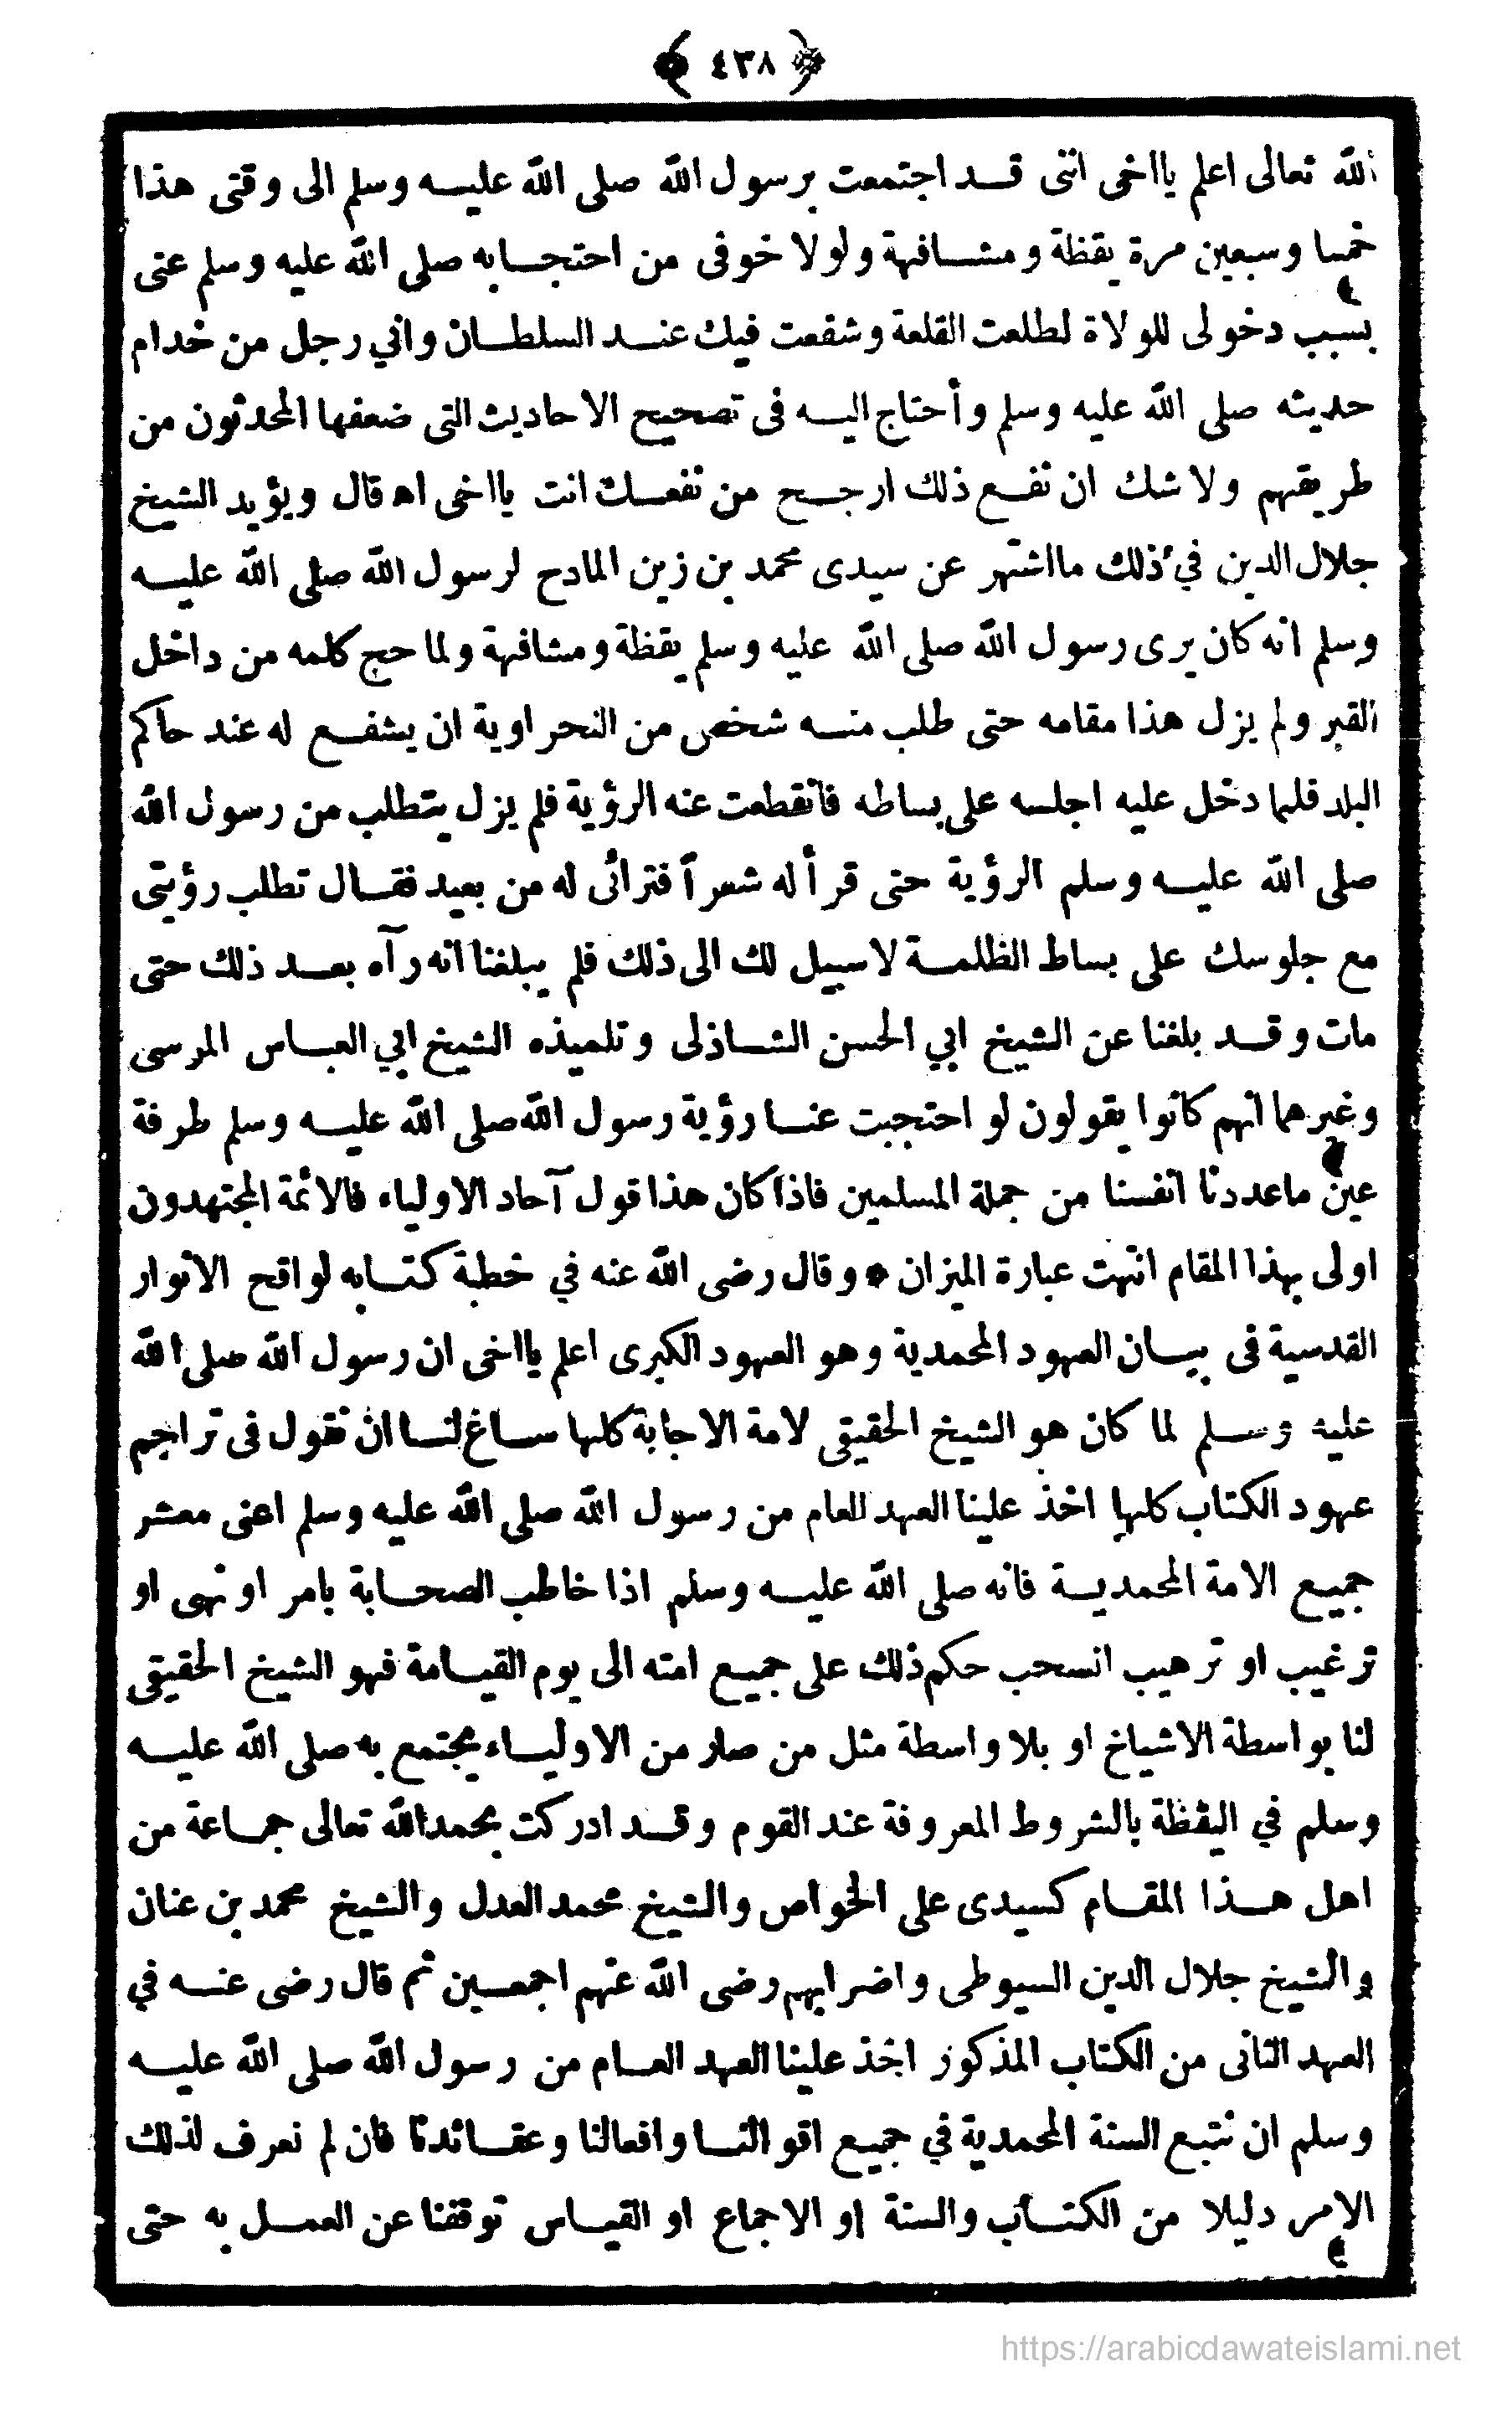 ﴿ ٤٣٨ ﴾
الله تعالى اعلم يااخى اننى قد اجتمعت برسول الله صلى الله عليه وسلم الى وقتى هذا
خمسا وسبعين مرة يقظة ومشافهة ولولا خوفى من احتجابه صلى الله عليه وسلم عنى
بسبب دخولى للولاة لطلعت القلعة وشفعت فيك عند السلطان واني رجل من خدام
حديثه صلى الله عليه وسلم وأحتاج اليه فى تصحيح الاحاديث التى ضعفها المحدثون من
طريقهم ولاشك ان نفع ذلك ارجح من نفعك انت يااخى اه قال ويؤيد الشيخ
جلال الدين في ذلك مااشتهر عن سيدى محمد بن زين المادح لرسول الله صلى الله عليه
وسلم انه كان يرى رسول الله صلى الله عليه وسلم يقظة ومشافهة ولما حج كلمه من داخل
القبر ولم يزل هذا مقامه حتى طلب منه شخص من النحراوية ان يشفع له عند حاكم
البلد فلما دخل عليه اجلسه على بساطه فانقطعت عنه الرؤية فلم يزل يتطلب من رسول الله
صلى الله عليه وسلم الرؤية حتى قرأ له شعراً فترائى له من بعيد فقال تطلب رؤيتى
مع جلوسك على بساط الظلمة لاسبيل لك الى ذلك فلم يبلغنا انه رآه بعد ذلك حتى
مات وقد بلغنا عن الشيخ ابي الحسن الشاذلى وتلميذه الشيخ ابي العباس المرسى
وغيرهما انهم كانوا يقولون لو احتجبت عنا رؤية رسول الله صلى الله عليه وسلم طرفة
عين ماعددنا انفسنا من جملة المسلمين فاذا كان هذا قول آحاد الاولياء فالائمة المجتهدون
اولى بهذا المقام انتهت عبارة الميزان * وقال رضى الله عنه في خطبة كتابه لواقح الانوار
القدسية فى بيان العهود المحمدية وهو العهود الكبرى اعلم يااخى ان رسول الله صلى الله
عليه وسلم لما كان هو الشيخ الحقيقى لامة الاجابة كلها ساغ لنا ان نقول فى تراجم
عهود الكتاب كلها اخذ علينا العهد العام من رسول الله صلى الله عليه وسلم اعنى معشر
جميع الامة المحمدية فانه صلى الله عليه وسلم اذا خاطب الصحابة بامر او نهى او
ترغيب او ترهيب انسحب حكم ذلك على جميع امته الى يوم القيامة فهو الشيخ الحقيقى
لنا بواسطة الاشياخ او بلا واسطة مثل من صار من الاولياء يجتمع به صلى الله عليه
وسلم في اليقظة بالشروط المعروفة عند القوم وقد ادركت بحمدالله تعالى جماعة من
اهل هذا المقام كسيدى على الخواص والشيخ محمد العدل والشيخ محمد بن عنان
والشيخ جلال الدين السيوطى واضرابهم رضى الله عنهم اجمعين ثم قال رضى عنه في
العهد الثانى من الكتاب المذكور اخذ علينا العهد العام من رسول الله صلى الله عليه
وسلم ان نتبع السنة المحمدية في جميع اقوالنا وافعالنا وعقائدنا فان لم نعرف لذلك
الامر دليلا من الكتاب والسنة او الاجماع او القياس توقفنا عن العمل به حتى
https://arabicdawateislami.net